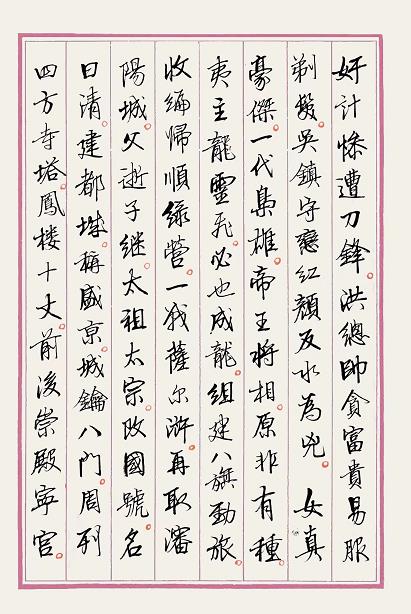 奸計慘遭刀鋒。洪總帥貪富貴易服
剃髮。吳鎮守戀紅顏反水為兇。女真
豪傑。一代梟雄。帝王將相。原非有種。
夷主龍靈飛。必也成龍。組建八旗勁旅。
收編歸順綠營。一薩尔滸。再取瀋
陽城。父逝子继。太祖太宗。改國號。名
曰清。建都城。稱盛京。城鑰八門。周列
四方寺塔。鳳楼十丈。前後崇殿寧宫。